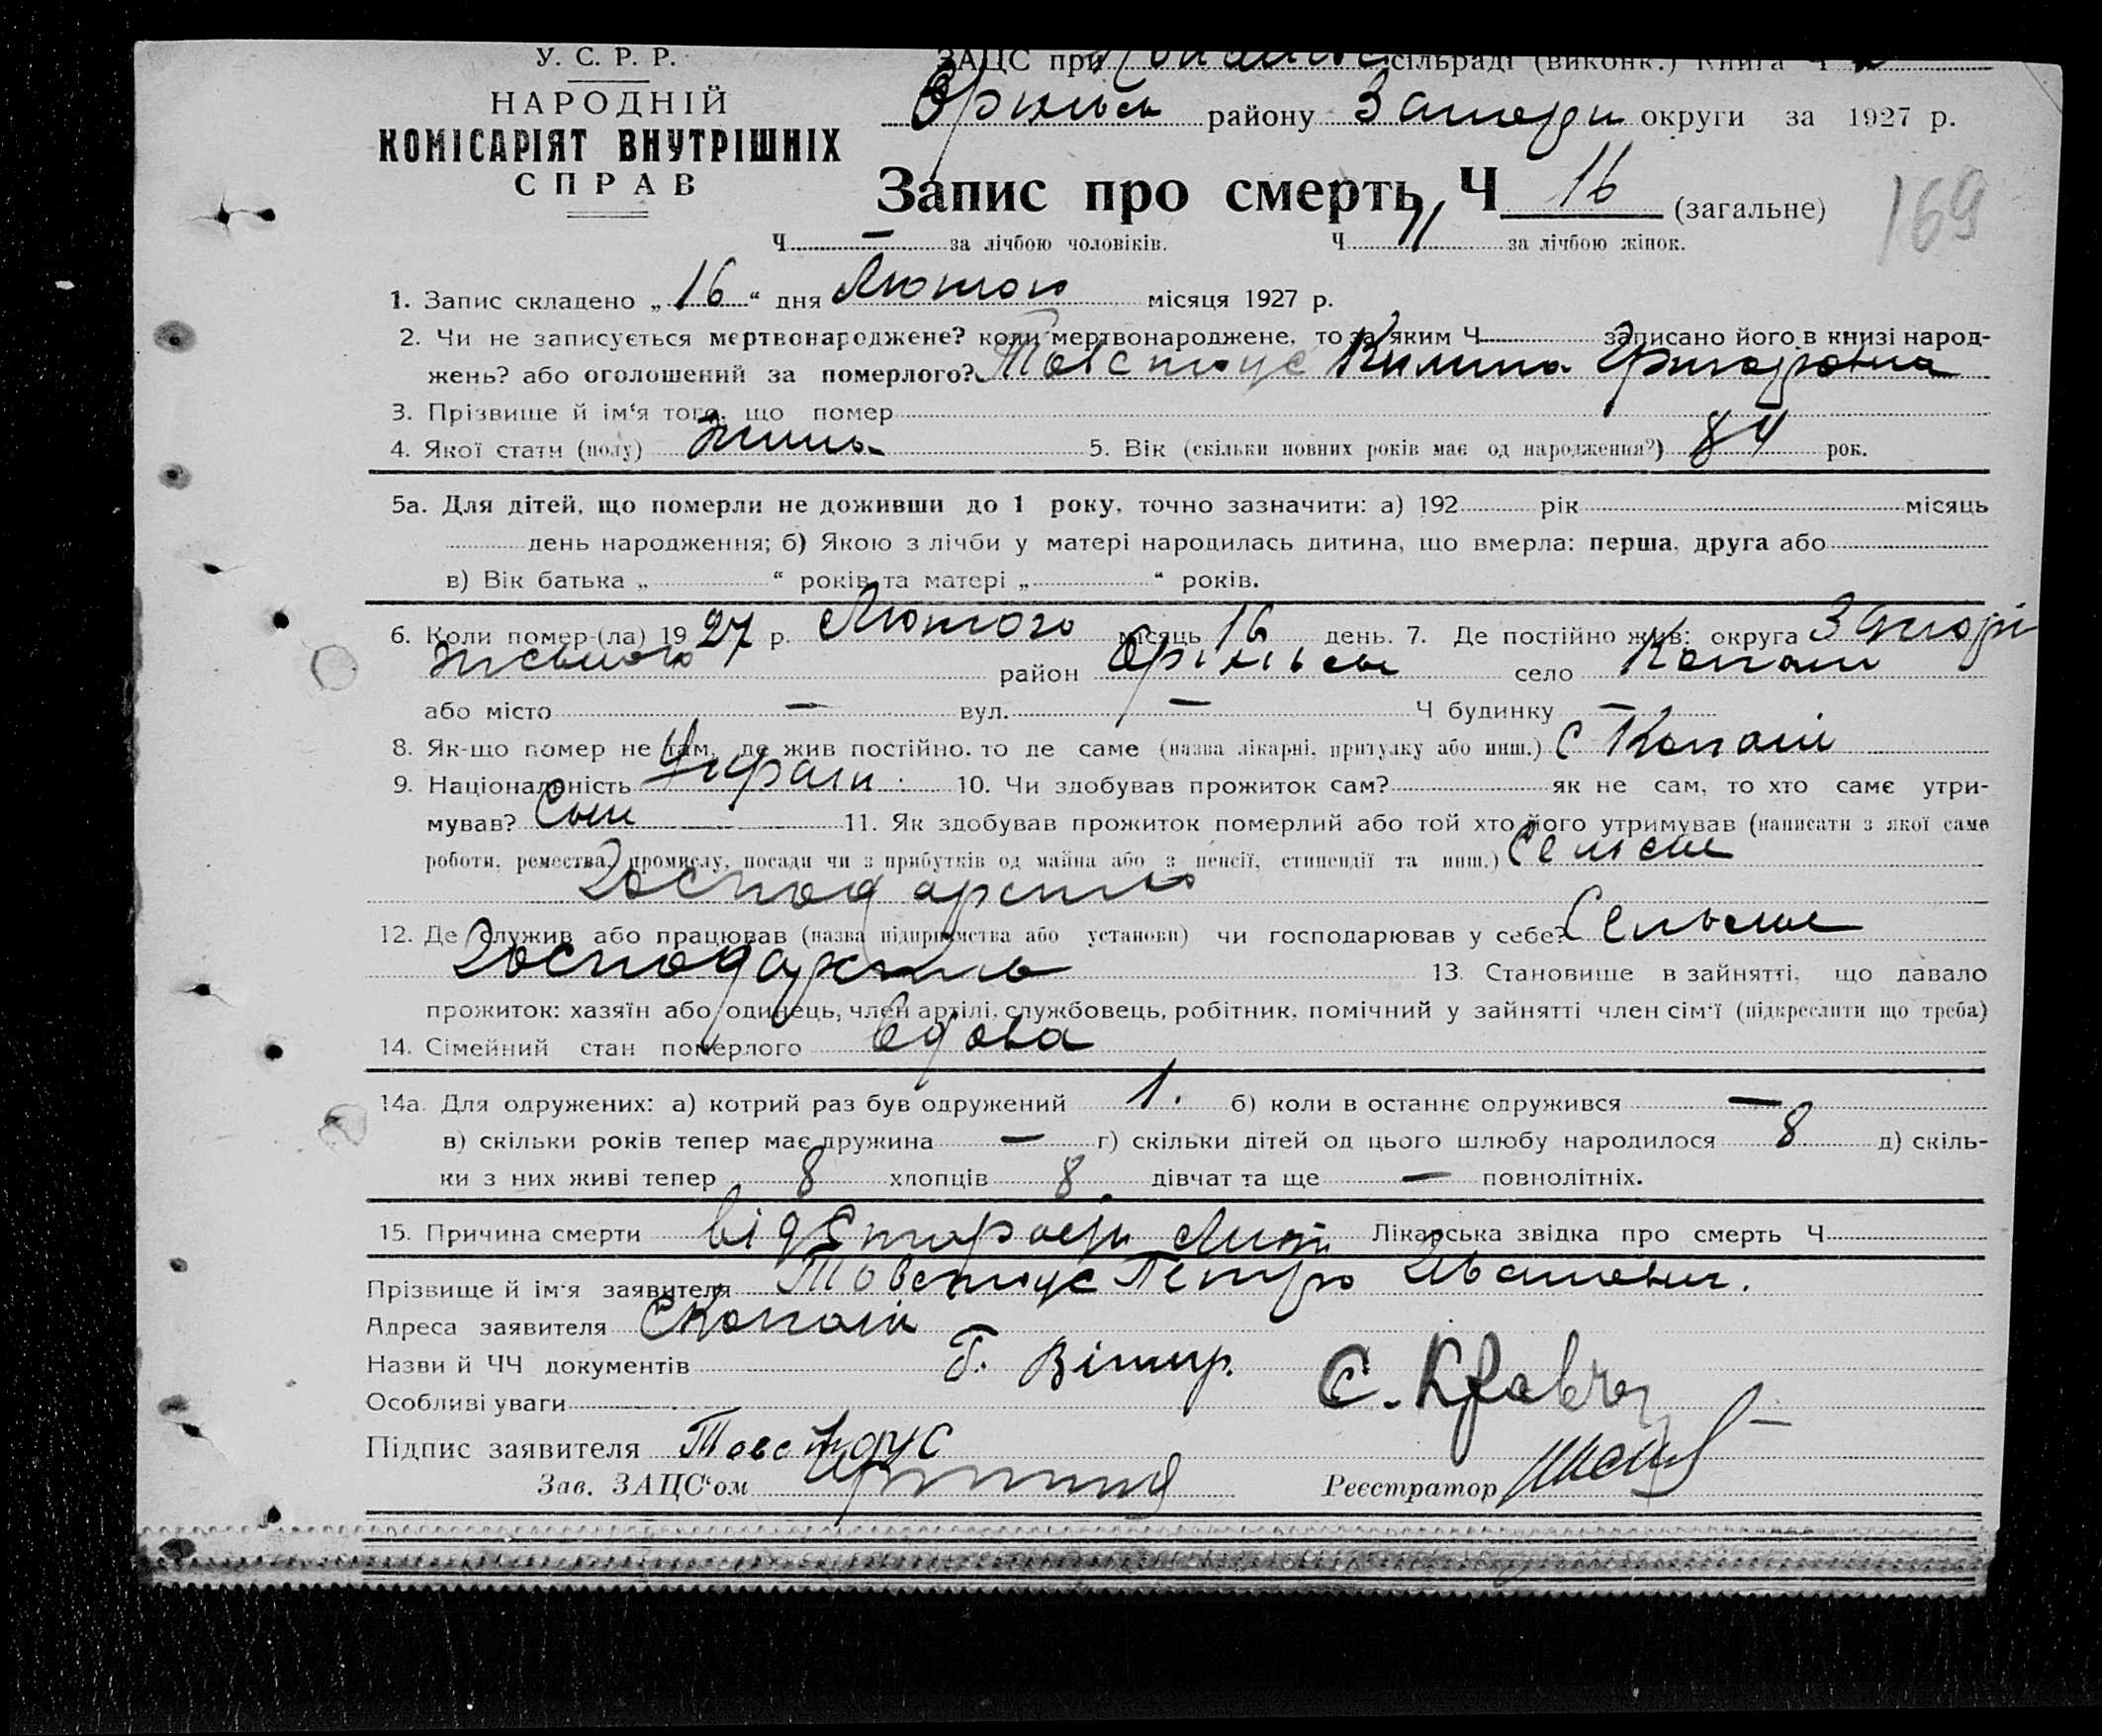 У. С. Р. Р.
НАРОДНІЙ
КОМІСАРІЯТ ВНУТРІШНІХ
СПРАВ
ЗАЦС при сільраді (виконк.) Книга Ч
району округи за 1927 р.
Запис про смерть Ч 16 (загальне)
169
Ч — за лічбою чоловіків. Ч 11 за лічбою жінок.
1. Запис складено „16“ дня Лютого місяця 1927 р.
2. Чи не записується мертвонароджене? коли мертвонароджене, то за яким Ч записано його в книзі народ-
жень? або оголошений за померлого? Товстоус Килина Григоровна
3. Прізвище й ім‘я того, що помер
4. Якої стати (полу) 5. Вік (скільки повних років має од народження?) 84 рок.
5а. Для дітей, що померли не доживши до 1 року, точно зазначити: а) 192 рік місяць
день народження; б) Якою з лічби у матері народилась дитина, що вмерла: перша, друга або
в) Вік батька „ “ років та матері „ “ років.
6. Коли помер-(ла) 1927 р. Лютого місяць 16 день. 7. Де постійно жив: округа Запорі
район село Копані
або місто — вул. — Ч будинку —
8. Як-що помер не там, де жив постійно, то де саме (назва лікарні, притулку або инш.) С Копані
9. Національність Украін. 10. Чи здобував прожиток сам? як не сам, то хто саме утри-
мував? Сын 11. Як здобував прожиток померлий або той хто його утримував (написати з якої саме
роботи, ремества, промислу, посади чи з прибутків од майна або з пенсії, стипендії та инш.)
12. Де служив або працював (назва підприємства або установи) чи господарював у себе?
13. Становище в зайнятті, що давало
прожиток: хазяїн або одинець, член артілі, службовець, робітник, помічний у зайнятті член сім‘ї (підкреслити що треба)
14. Сімейний стан померлого вдова
14а. Для одружених: а) котрий раз був одружений 1. б) коли в останнє одружився —
в) скільки років тепер має дружина — г) скільки дітей од цього шлюбу народилося 8 д) скіль-
ки з них живі тепер 8 хлопців 8 дівчат та ще — повнолітніх.
15. Причина смерти від Лікарська звідка про смерть Ч
Прізвище й ім‘я заявителя Товстоус Петро Иванович.
Адреса заявителя С Копані
Назви й ЧЧ документів
Особливі уваги
Підпис заявителя Товстоус
Зав. ЗАЦС‘ом Реєстратор